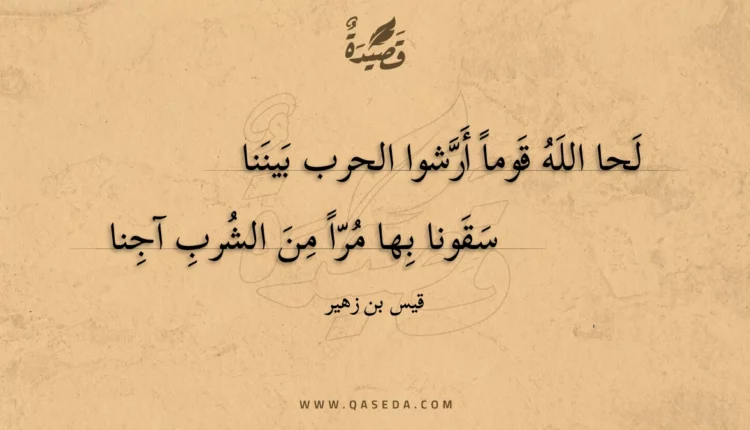 قَصِيْدَةٌ
لَحا اللَهُ قَوماً أَرَّشوا الحرب بَينَنا
سَقَونا بِها مُرّاً مِنَ الشُربِ آجِنا
قيس بن زهير
WWW.QASEDA.COM